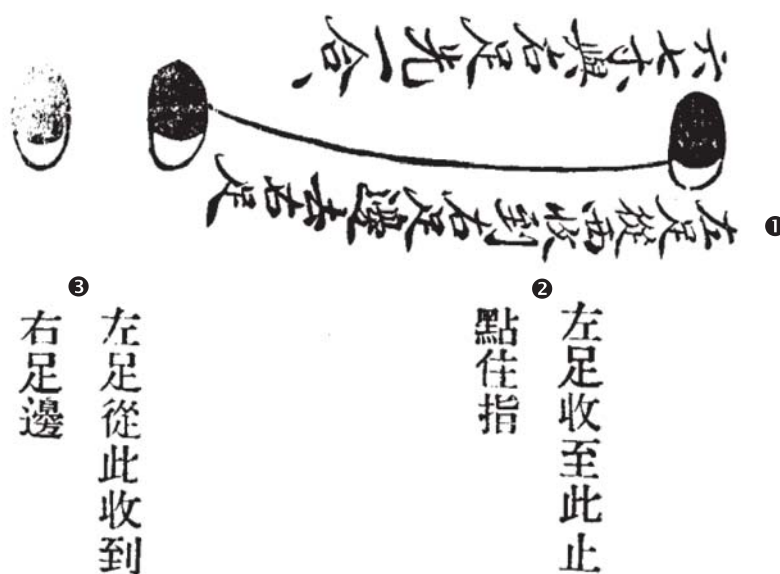 ❶
左足從西收到右足邊去右足
六七寸與右足先一合、
❷
左足收至此止
點住指
❸
左足從此收到
右足邊